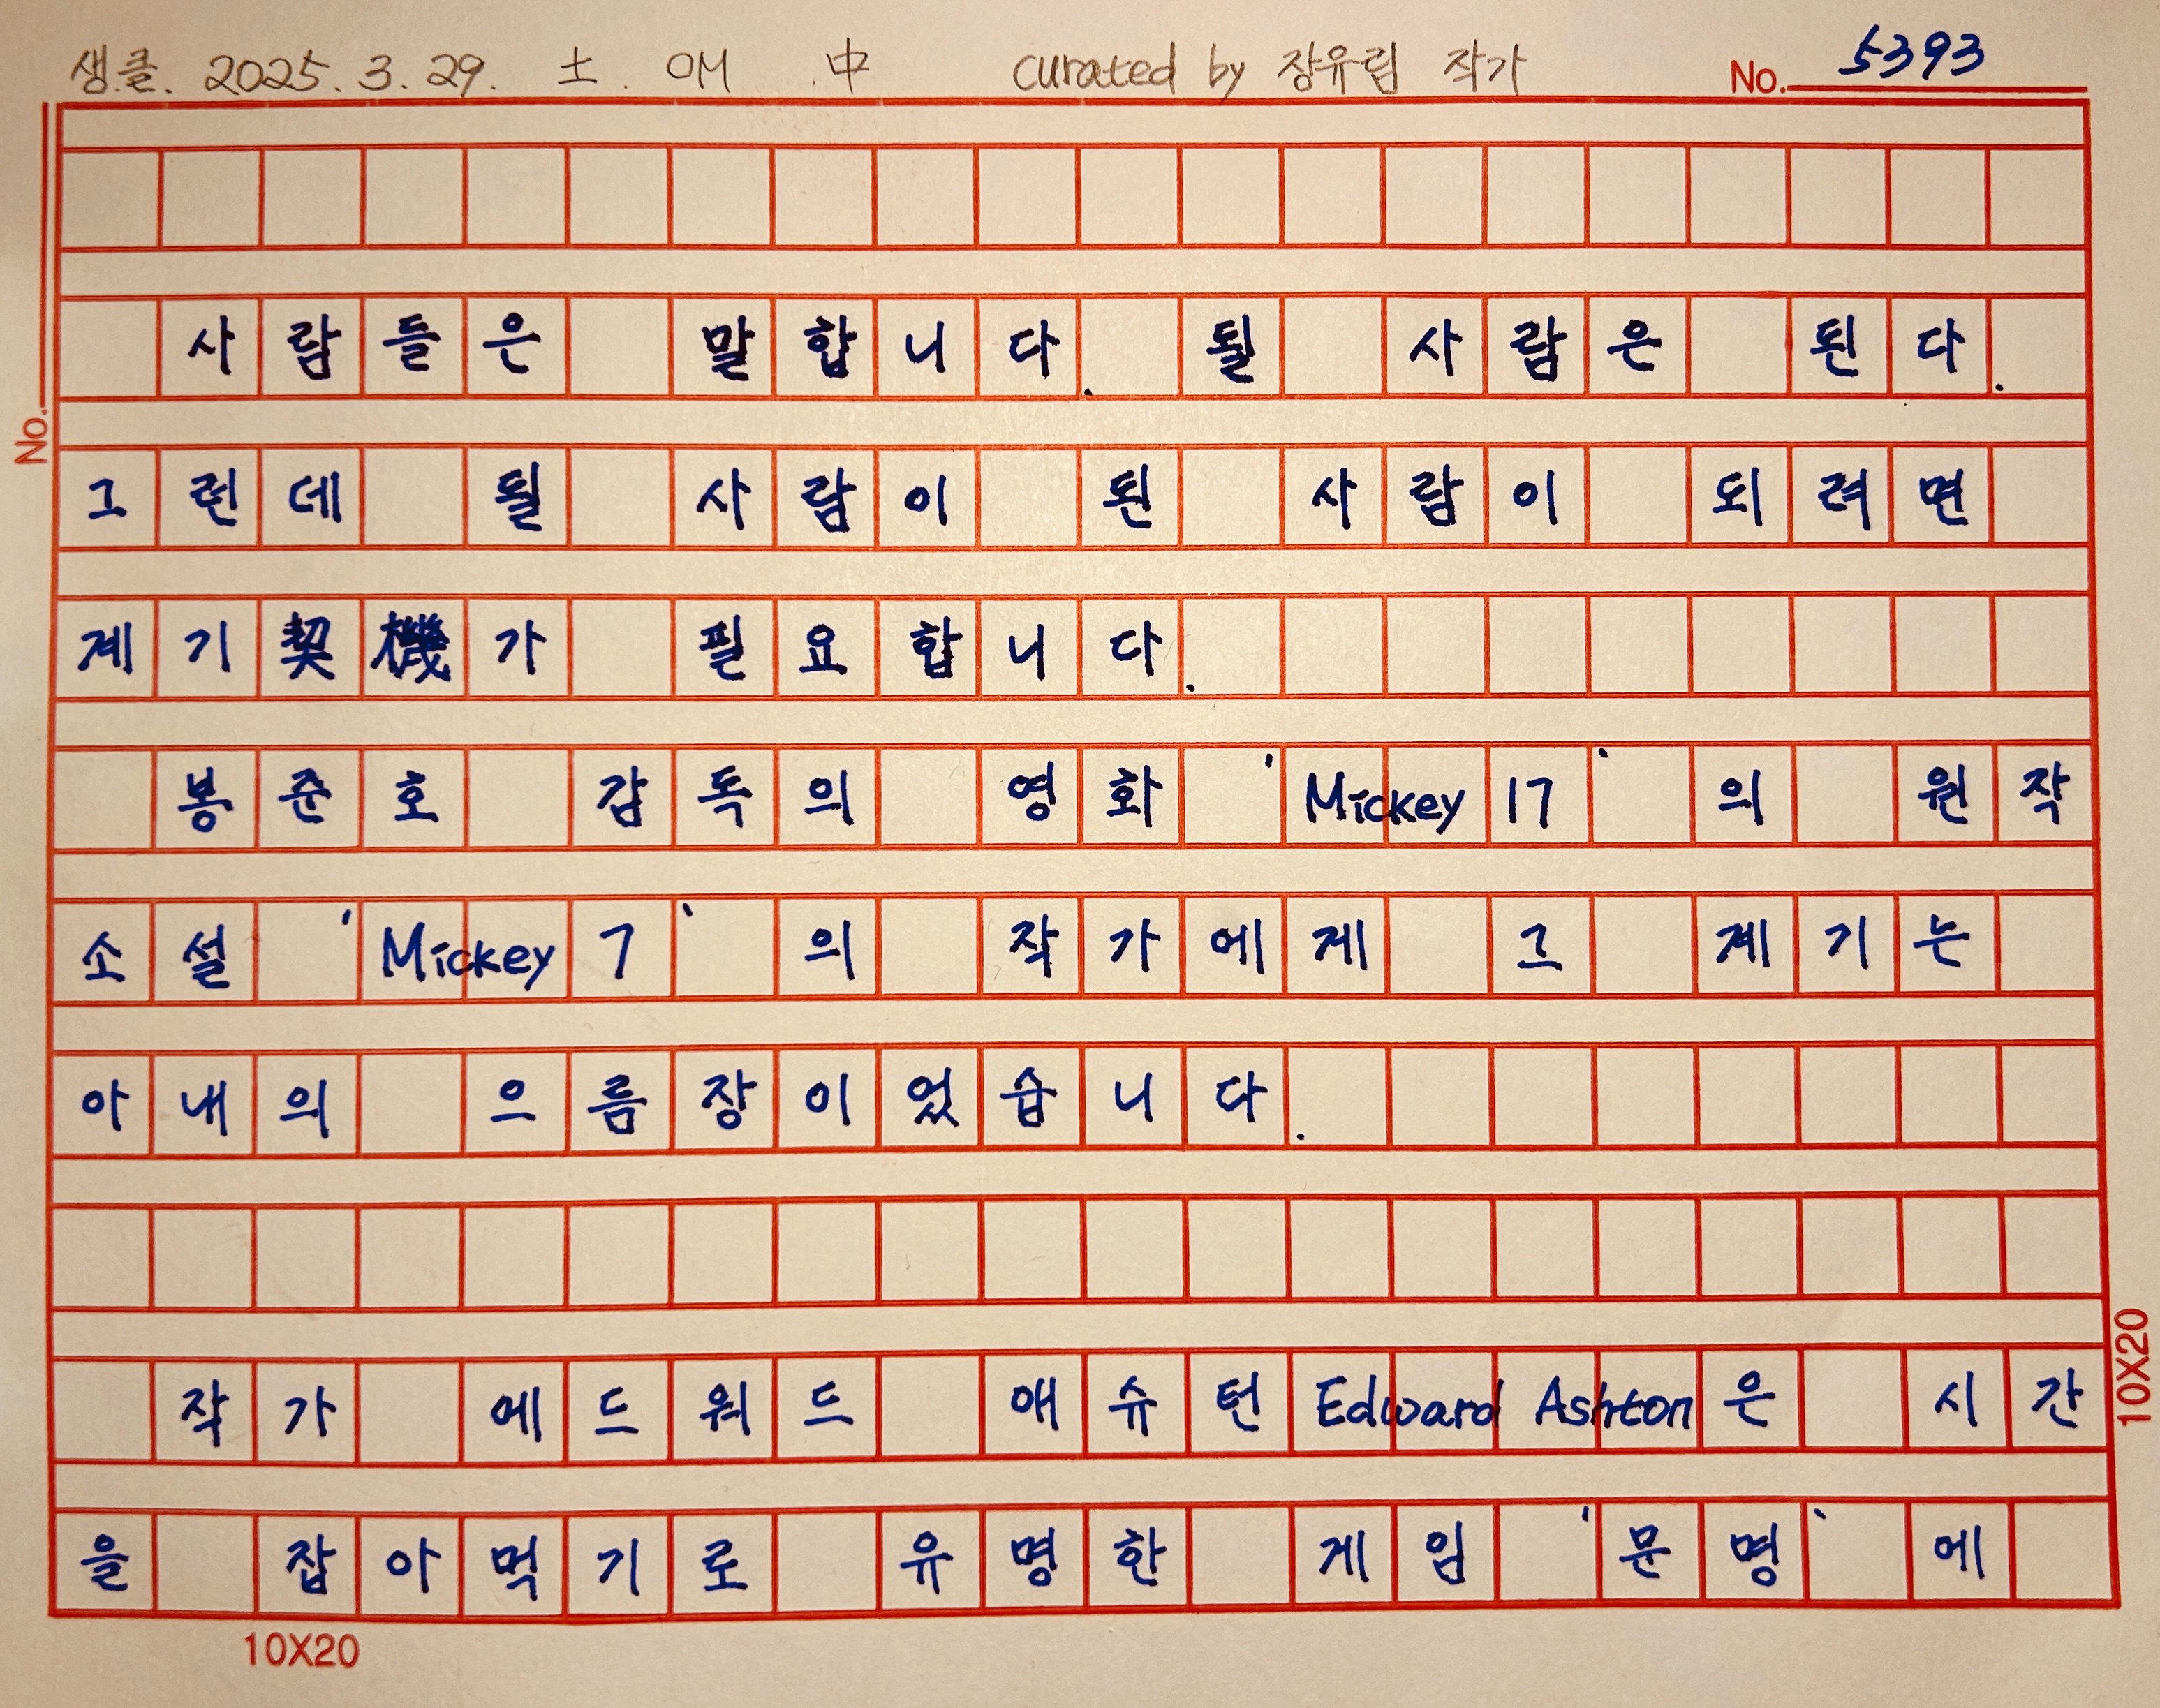 생클. 2025. 3. 29. 土. OM 中 curated by 장유림 작가 No. 5393
사람들은 말합니다. 될 사람은 된다.
그런데 될 사람이 된 사람이 되려면
No.
계기契機가 필요합니다.
봉준호 감독의 영화 'Mickey 17'의 원작
소설 'Mickey 7'의 작가에게 그 계기는
아내의 으름장이었습니다.
작가 에드워드 애슈턴Edward Ashton은 시간
을 잡아먹기로 유명한 게임 '문명'에
10X20
10X20